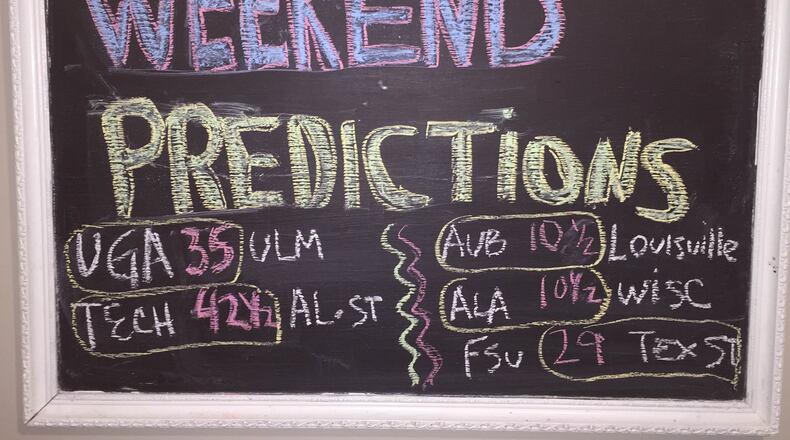 WEEKEND
PREDICTIONS
UGA 35 ULM
TECH 42½ AL.ST
AUB 10½ Louisville
ALA 10½ WISC
FSU 29 TEX ST